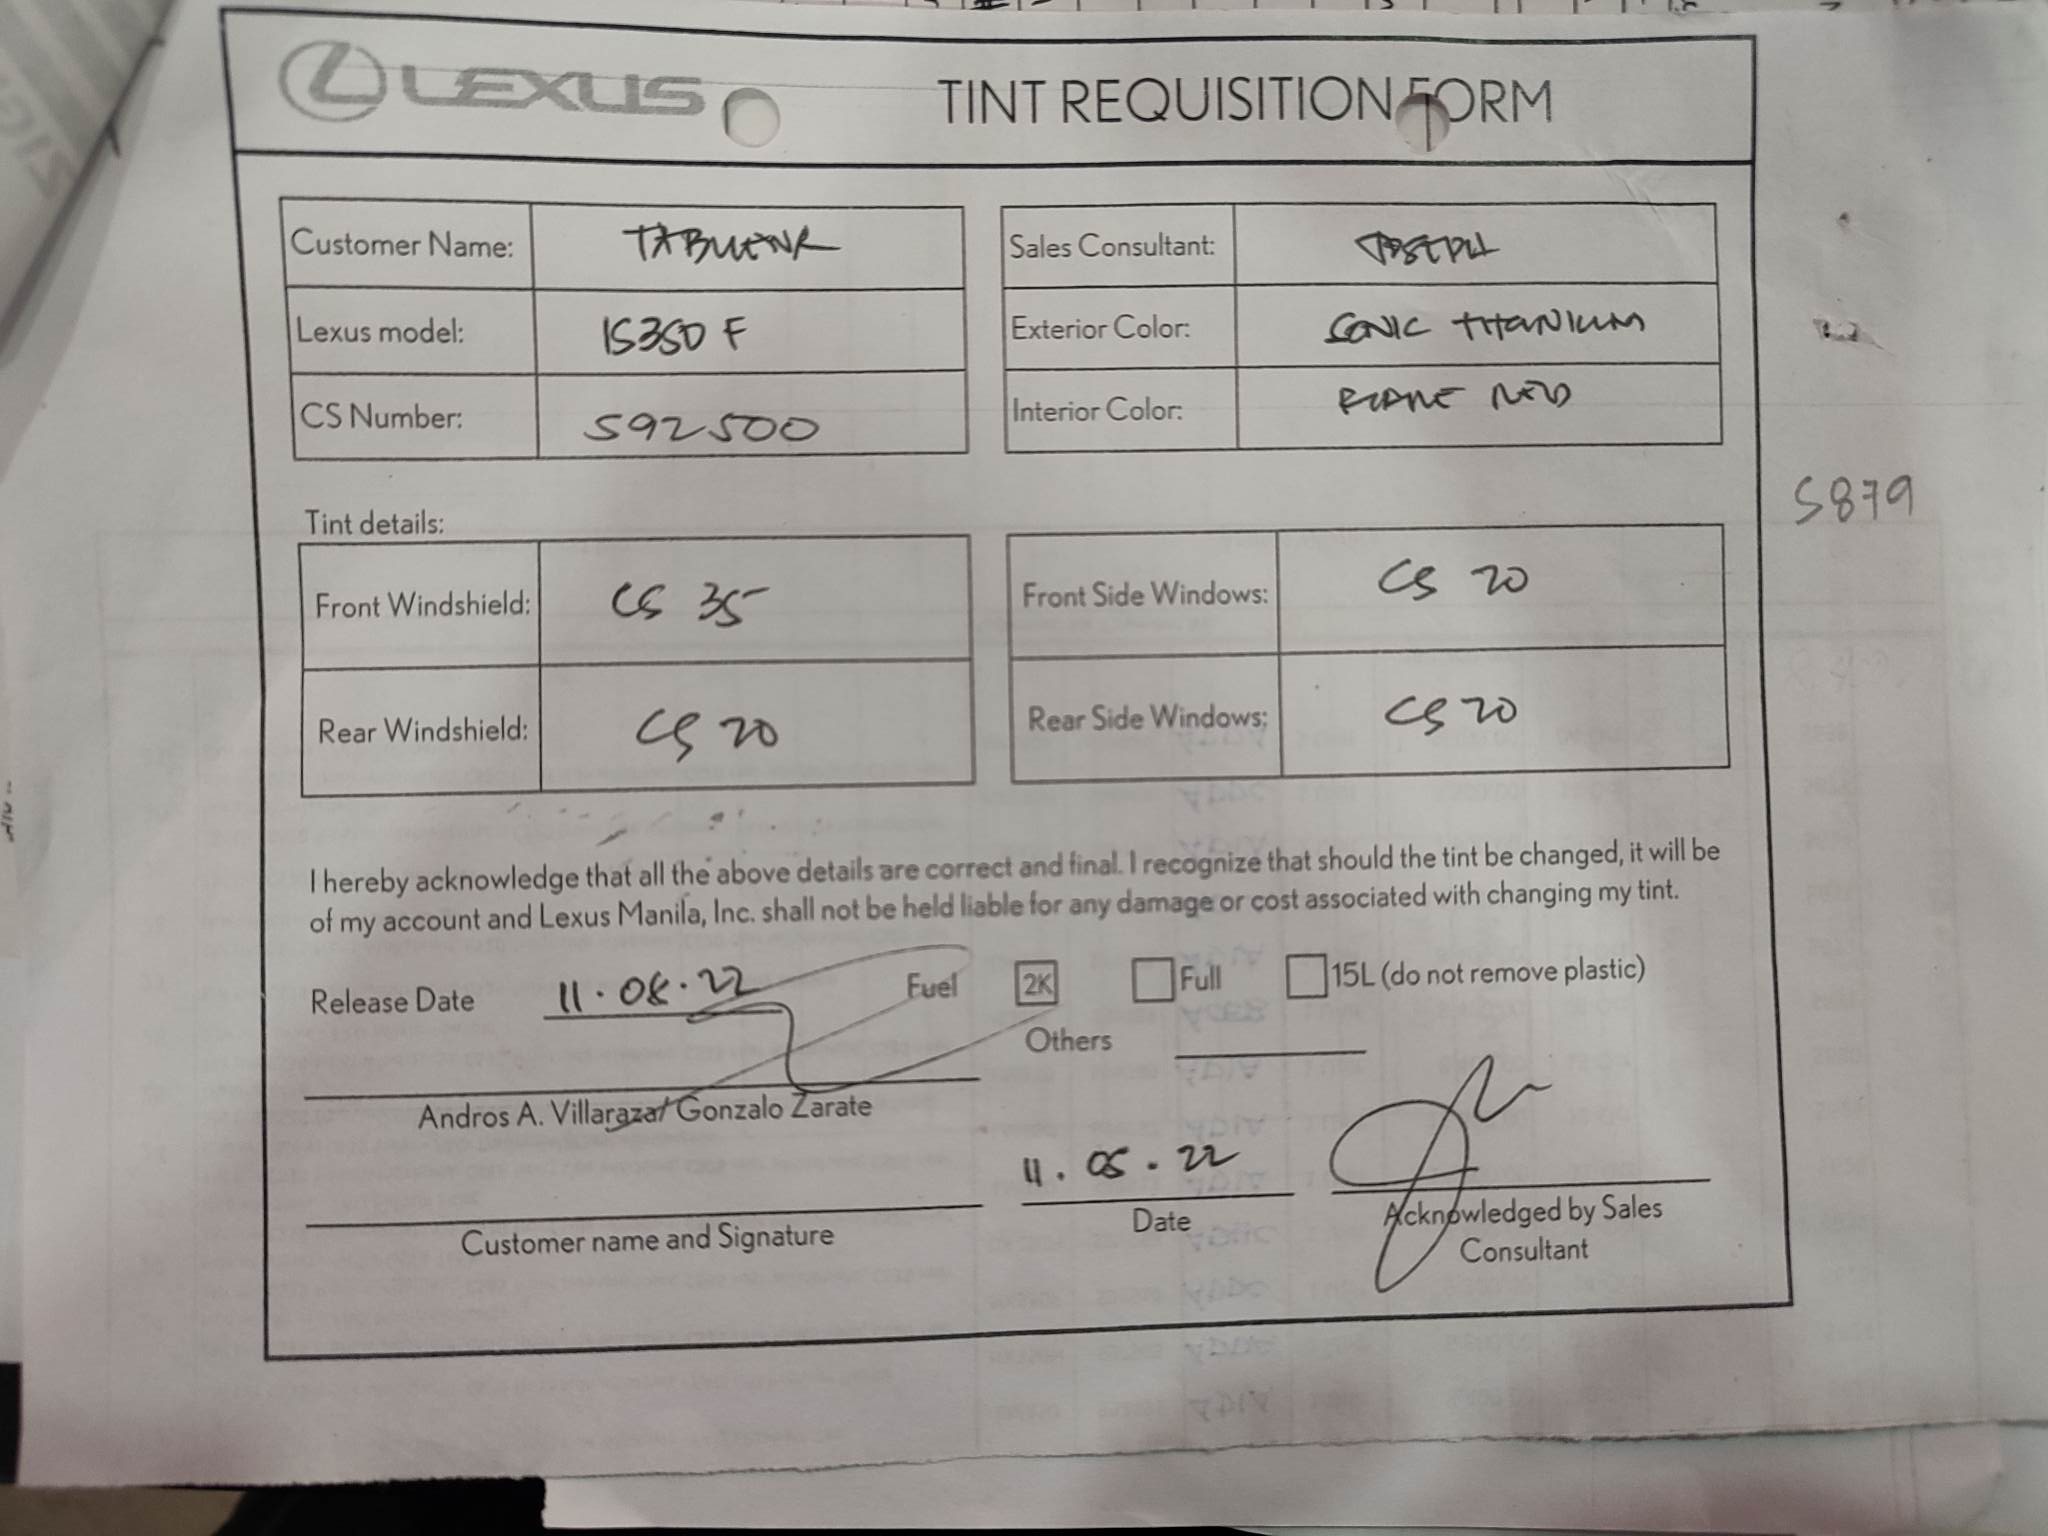 LEXUS
TINT REQUISITION FORM
Customer Name: TABUENA
Sales Consultant: JOSEPH
Lexus model: IS350 F
Exterior Color: SONIC TITANIUM
CS Number: S92500
Interior Color: FLARE RED
S879
Tint details:
Front Windshield: CS 35
Front Side Windows: CS 20
Rear Windshield: CS 20
Rear Side Windows: CS 20
I hereby acknowledge that all the above details are correct and final. I recognize that should the tint be changed, it will be
of my account and Lexus Manila, Inc. shall not be held liable for any damage or cost associated with changing my tint.
Release Date 11.08.22 Fuel 2K Full 15L (do not remove plastic)
Others
Andros A. Villaraza/ Gonzalo Zarate
11.05.22
Customer name and Signature
Date
Acknowledged by Sales
Consultant